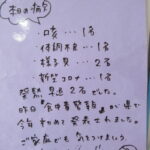 本日の病欠
・口咳…1名
・体調不良…1名
・様子見…2名
・新型コロナ…1名
発熱 早退 2名でした。
昨日「食中毒警報」が県で
今年初めて発表されました。
ご家庭でも気をつけましょう